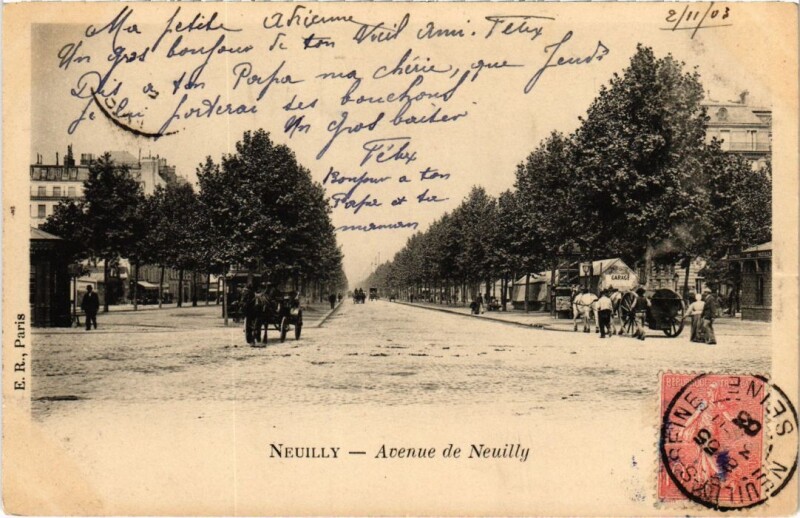 2/11/03
Ma petite Adrienne
Un gros bonjour de ton Vieil ami. Félix
Dis a ton Papa ma chérie, que Jeudi
je lui porterai ses bouchons
Un Gros baiser
Félix
Bonjour a ton
Papa et ta
maman
GARAGE
E. R., Paris
NEUILLY — Avenue de Neuilly
NEUILLY-S-SEINE
SEINE